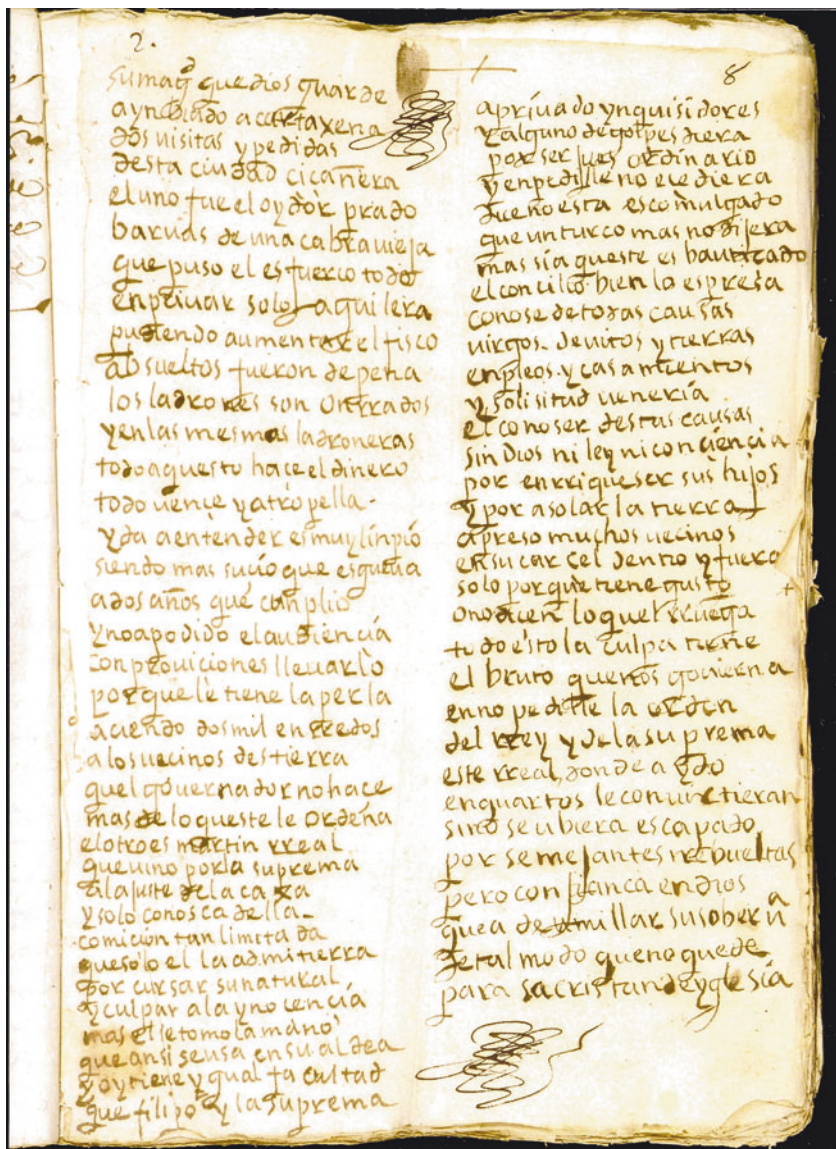 2.
8
su magd que dios guarde
a ynbiado a cartaxena
dos visitas y pedidas
desta ciudad cicañera
el uno fue el oydor prado
barvas de una cabra vieja
que puso el esfuerco todo
en privar solo aguilera
pudiendo aumentar el fisco
absueltos fueron de pena
los ladrones son onrrados
y en las mesmas ladroneras
todo aquesto hace el dinero
todo vence y atropella
y da a entender es muy linpio
siendo mas sucio que esgueva
a dos años que cunplio
y no a podido el audiencia
con proviciones llevarlo
porque le tiene la perla
aciendo dos mil enrredos
a los vecinos destierra
quel governador no hace
mas de lo que este le ordena
el otro es martin rreal
que vino por la suprema
al ajuste de la caxa
y solo conosca della
comicion tan limitada
que solo el la admitierra
por cursar su natural
y culpar a la ynocencia
mas el se tomo la mano
que ansi se usa en su aldea
y oy tiene ygual facultad
que filipo y la suprema
a privado ynquisidores
y alguno de golpes diera
por ser jues ordinario
y en pedille no ele diera
que no esta escomulgado
que un turco mas no dijera
mas sia queste es bauticado
el concilio bien lo espresa
conose de todas causas
virgos. devitos y tierras
enpleos. y casamientos
y solisitud veneria
el conoser destas causas
sin Dios ni ley ni conciencia
por enrriqueser sus hijos
y por asolar la tierra
a preso muchos vecinos
en su carcel dentro y fuera
solo porque tiene gusto
o no dicen lo quel rruega
todo esto la culpa tiene
el bruto que nos govierna
en no pedille la orden
del rrey y de la suprema
este rreal, donde a ydo
en quartos le convirtieran
sino se ubiera escapado
por semejantes rebueltas
pero confianca en dios
que a de umillar su soberva
de tal modo que no quede
para sacristan de yglesia